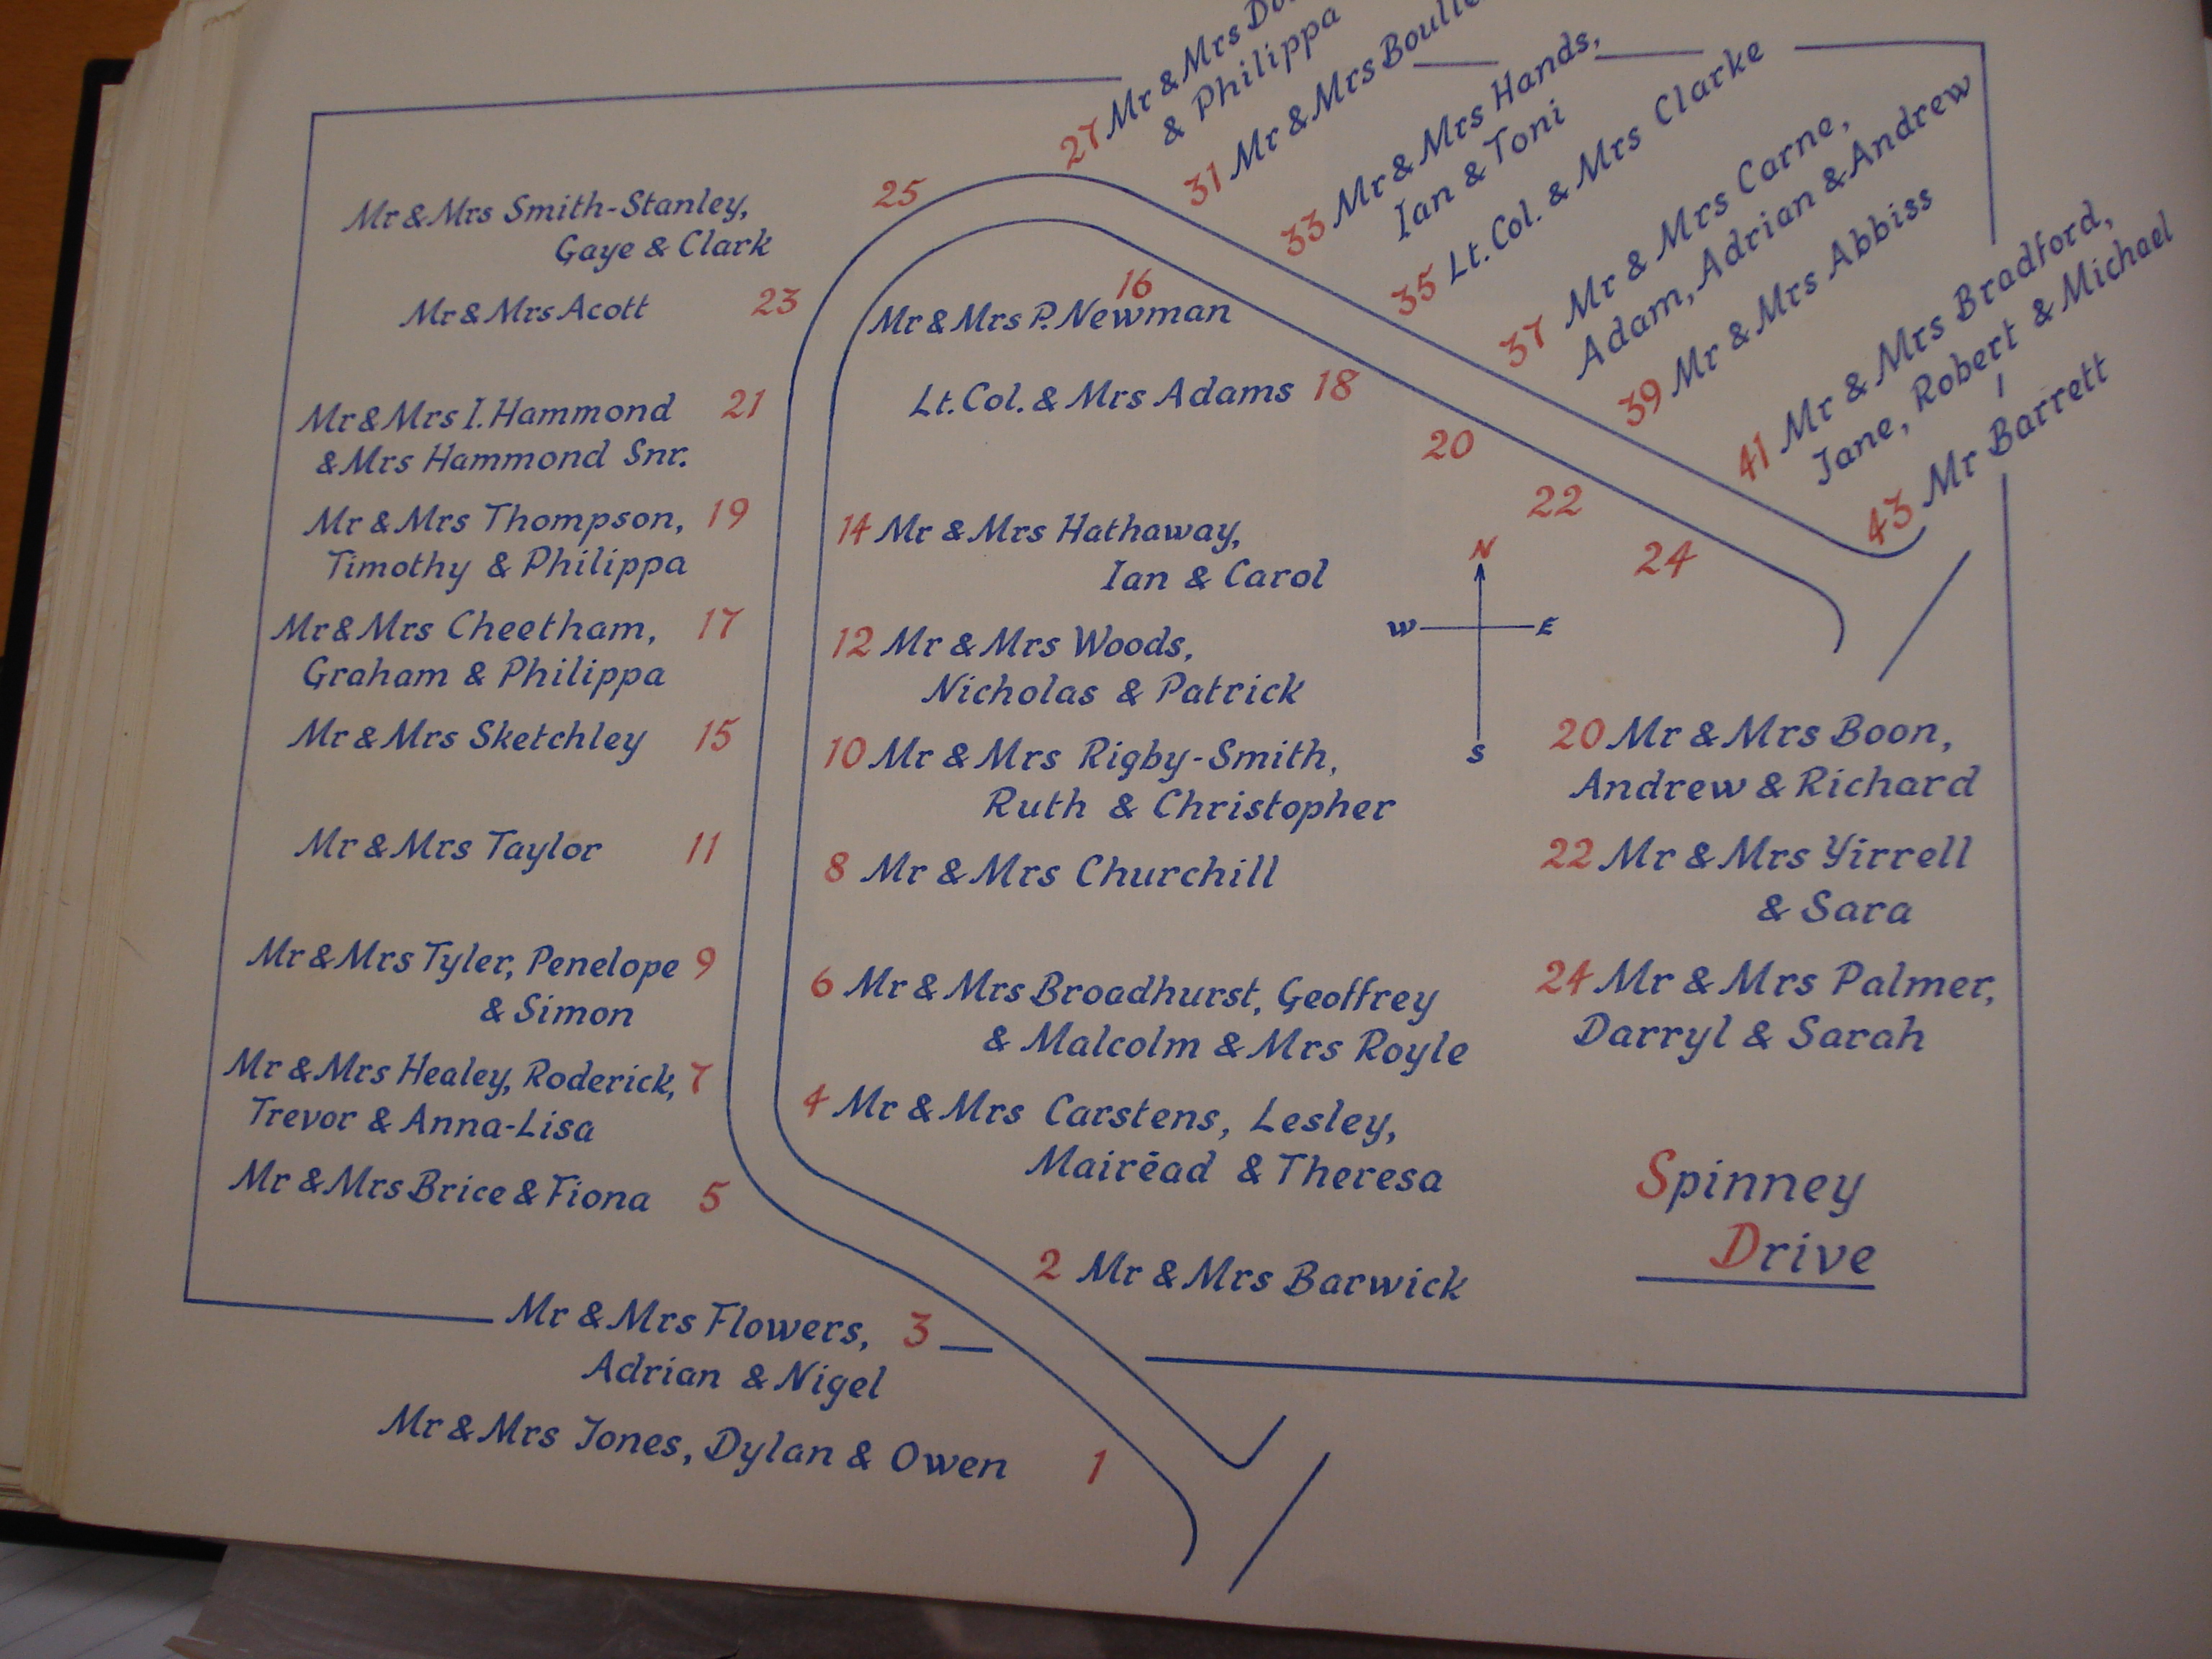 27 Mr & Mrs
& Philippa
31 Mr & Mrs
33 Mr & Mrs Hands,
Ian & Toni
35 Lt. Col. & Mrs Clarke
37 Mr & Mrs Carne,
Adam, Adrian & Andrew
39 Mr & Mrs Abbiss
41 Mr & Mrs Bradford,
Jane, Robert & Michael
43 Mr Barrett
25
Mr & Mrs Smith-Stanley,
Gaye & Clark
Mr & Mrs Acott 23
Mr & Mrs I. Hammond 21
& Mrs Hammond Snr.
Mr & Mrs Thompson, 19
Timothy & Philippa
Mr & Mrs Cheetham, 17
Graham & Philippa
Mr & Mrs Sketchley 15
Mr & Mrs Taylor 11
Mr & Mrs Tyler, Penelope 9
& Simon
Mr & Mrs Healey, Roderick, 7
Trevor & Anna-Lisa
Mr & Mrs Brice & Fiona 5
Mr & Mrs Flowers, 3
Adrian & Nigel
Mr & Mrs Jones, Dylan & Owen 1
16
Mr & Mrs P. Newman
Lt. Col. & Mrs Adams 18
20
22
24
14 Mr & Mrs Hathaway,
Ian & Carol
12 Mr & Mrs Woods,
Nicholas & Patrick
10 Mr & Mrs Rigby-Smith,
Ruth & Christopher
8 Mr & Mrs Churchill
6 Mr & Mrs Broadhurst, Geoffrey
& Malcolm & Mrs Royle
4 Mr & Mrs Carstens, Lesley,
Mairēad & Theresa
2 Mr & Mrs Barwick
N
W E
S
20 Mr & Mrs Boon,
Andrew & Richard
22 Mr & Mrs Yirrell
& Sara
24 Mr & Mrs Palmer,
Darryl & Sarah
Spinney
Drive